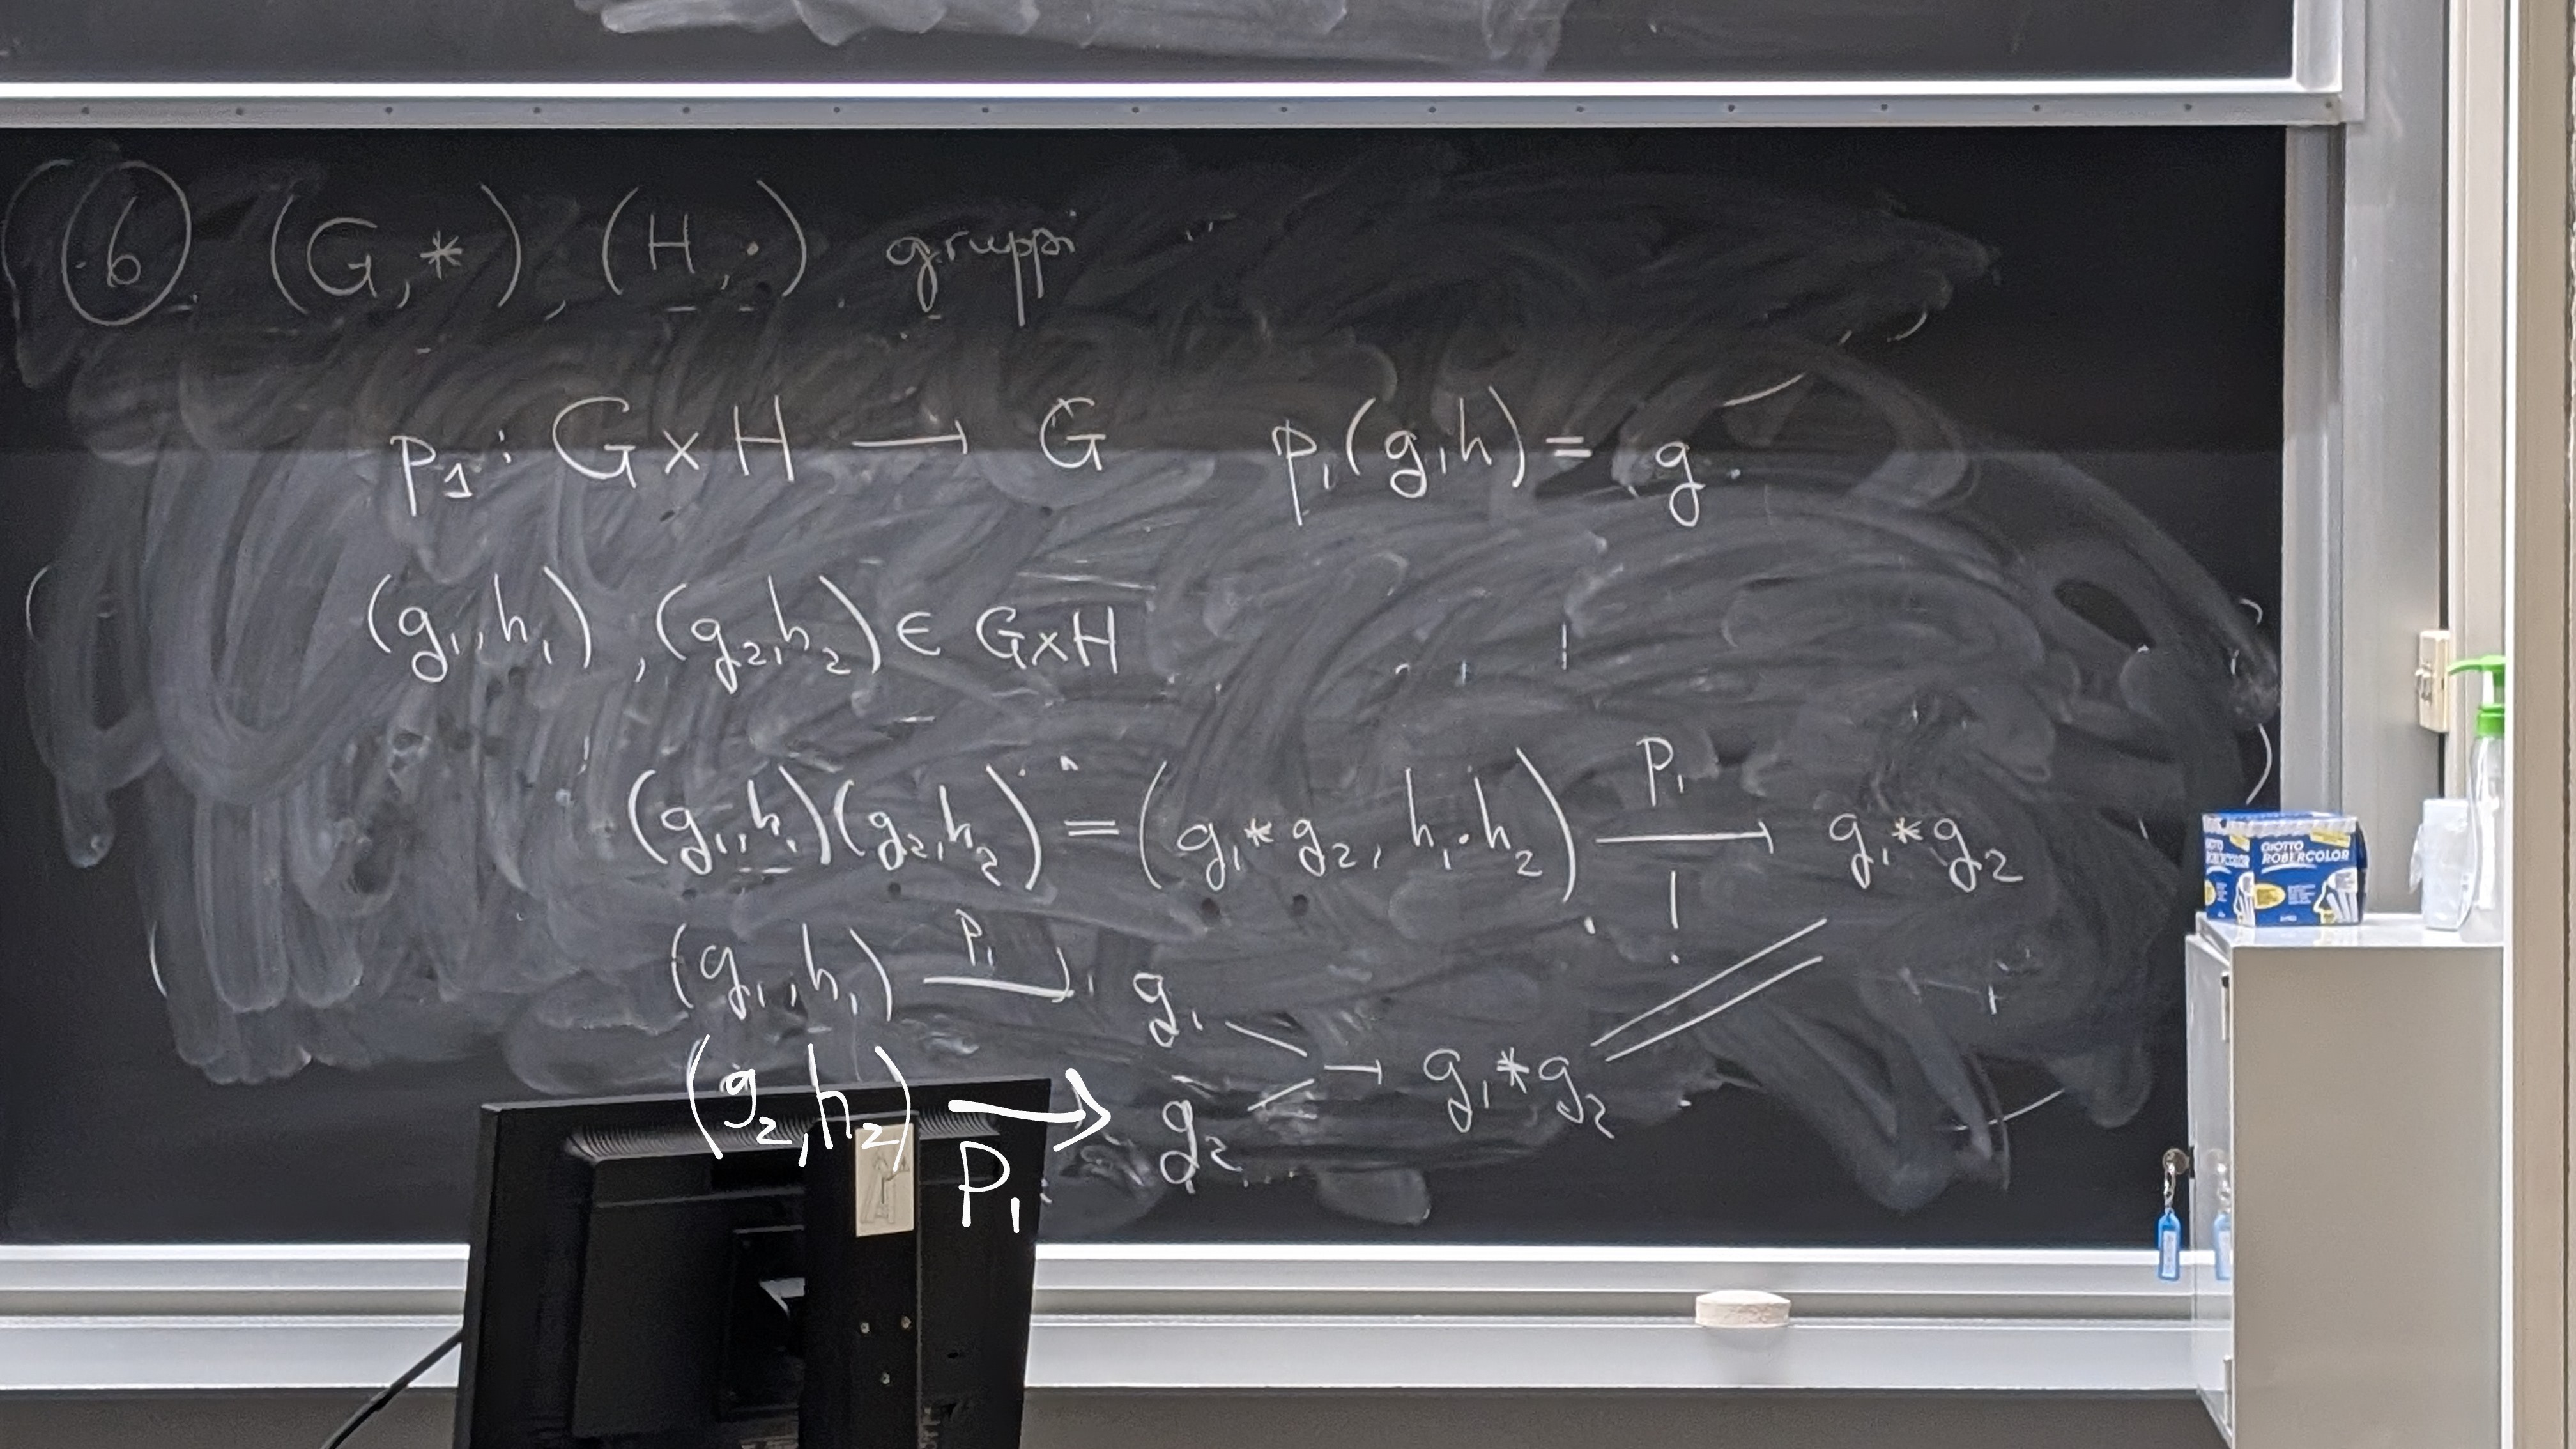 6 (G,*), (H,·) gruppi
p₁: G×H → G p₁(g,h) = g.
(g₁,h₁), (g₂,h₂) ∈ G×H
(g₁,h₁)(g₂,h₂) = (g₁*g₂, h₁·h₂) →^{p₁} g₁*g₂
!
(g₁,h₁) →^{p₁} g₁
→ g₁*g₂
(g₂,h₂) →_{p₁} g₂
GIOTTO
ROBERCOLOR